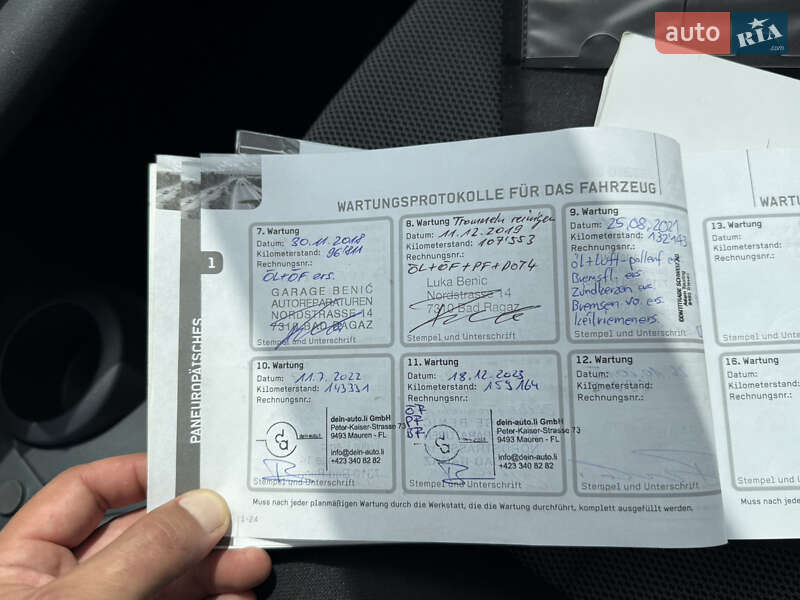 auto RIA.com
WARTUNGSPROTOKOLLE FÜR DAS FAHRZEUG
WARTU
1
PANEUROPÄTSCHES
7. Wartung
Datum: 30.11.2018
Kilometerstand: 96'811
Rechnungsnr.:
ÖL+ÖF ers.
GARAGE BENIĆ
AUTOREPARATUREN
NORDSTRASSE 14
7310 BAD RAGAZ
Stempel und Unterschrift
8. Wartung Trommeln reinigen
Datum: 11.12.2019
Kilometerstand: 107'553
Rechnungsnr.:
ÖL+ÖF+PF+DOT4
Luka Benic
Nordstrasse 14
7310 Bad Ragaz
Stempel und Unterschrift
9. Wartung
Datum: 25.08.2021
Kilometerstand: 132143
Rechnungsnr.:
Öl+Luft-pollenf ers
Bremsfl. ers
Zündkerzen ers.
Bremsen vo. ers.
Keilriemen ers.
Stempel und Unterschrift
13. Wartung
Datum:
Kilometerstand:
Rechnungsnr.:
Stempel und Unterschrift
10. Wartung
Datum: 11.7.2022
Kilometerstand: 143331
Rechnungsnr.:
dein-auto.li GmbH
Peter-Kaiser-Strasse 73
9493 Mauren - FL
info@dein-auto.li
+423 340 82 82
Stempel und Unterschrift
11. Wartung
Datum: 18.12.2023
Kilometerstand: 159164
Rechnungsnr.:
ÖF
PF
BF
dein-auto.li GmbH
Peter-Kaiser-Strasse 73
9493 Mauren - FL
info@dein-auto.li
+423 340 82 82
Stempel und Unterschrift
12. Wartung
Datum:
Kilometerstand:
Rechnungsnr.:
Stempel und Unterschrift
16. Wartung
Datum:
Kilometerstand:
Rechnungsnr.:
Stempel und Unterschrift
Muss nach jeder planmäßigen Wartung durch die Werkstatt, die die Wartung durchführt, komplett ausgefüllt werden.
Muss nach jeder
1-24